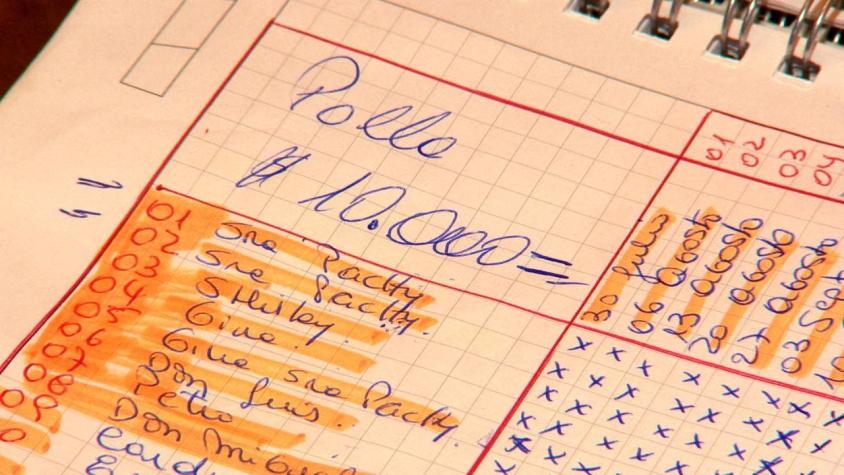 Polla
$ 10.000=
01 02 03 04
30 Julio
06 agosto
13 agosto
20 agosto
27 agosto
03 Sept
01 Sra Pachy.
02 Sra Pachy.
03 Shirley.
04 Gina.
05 Gina Sra Pachy.
06 Don Luis.
07 Petro
08 Don Miguel
09